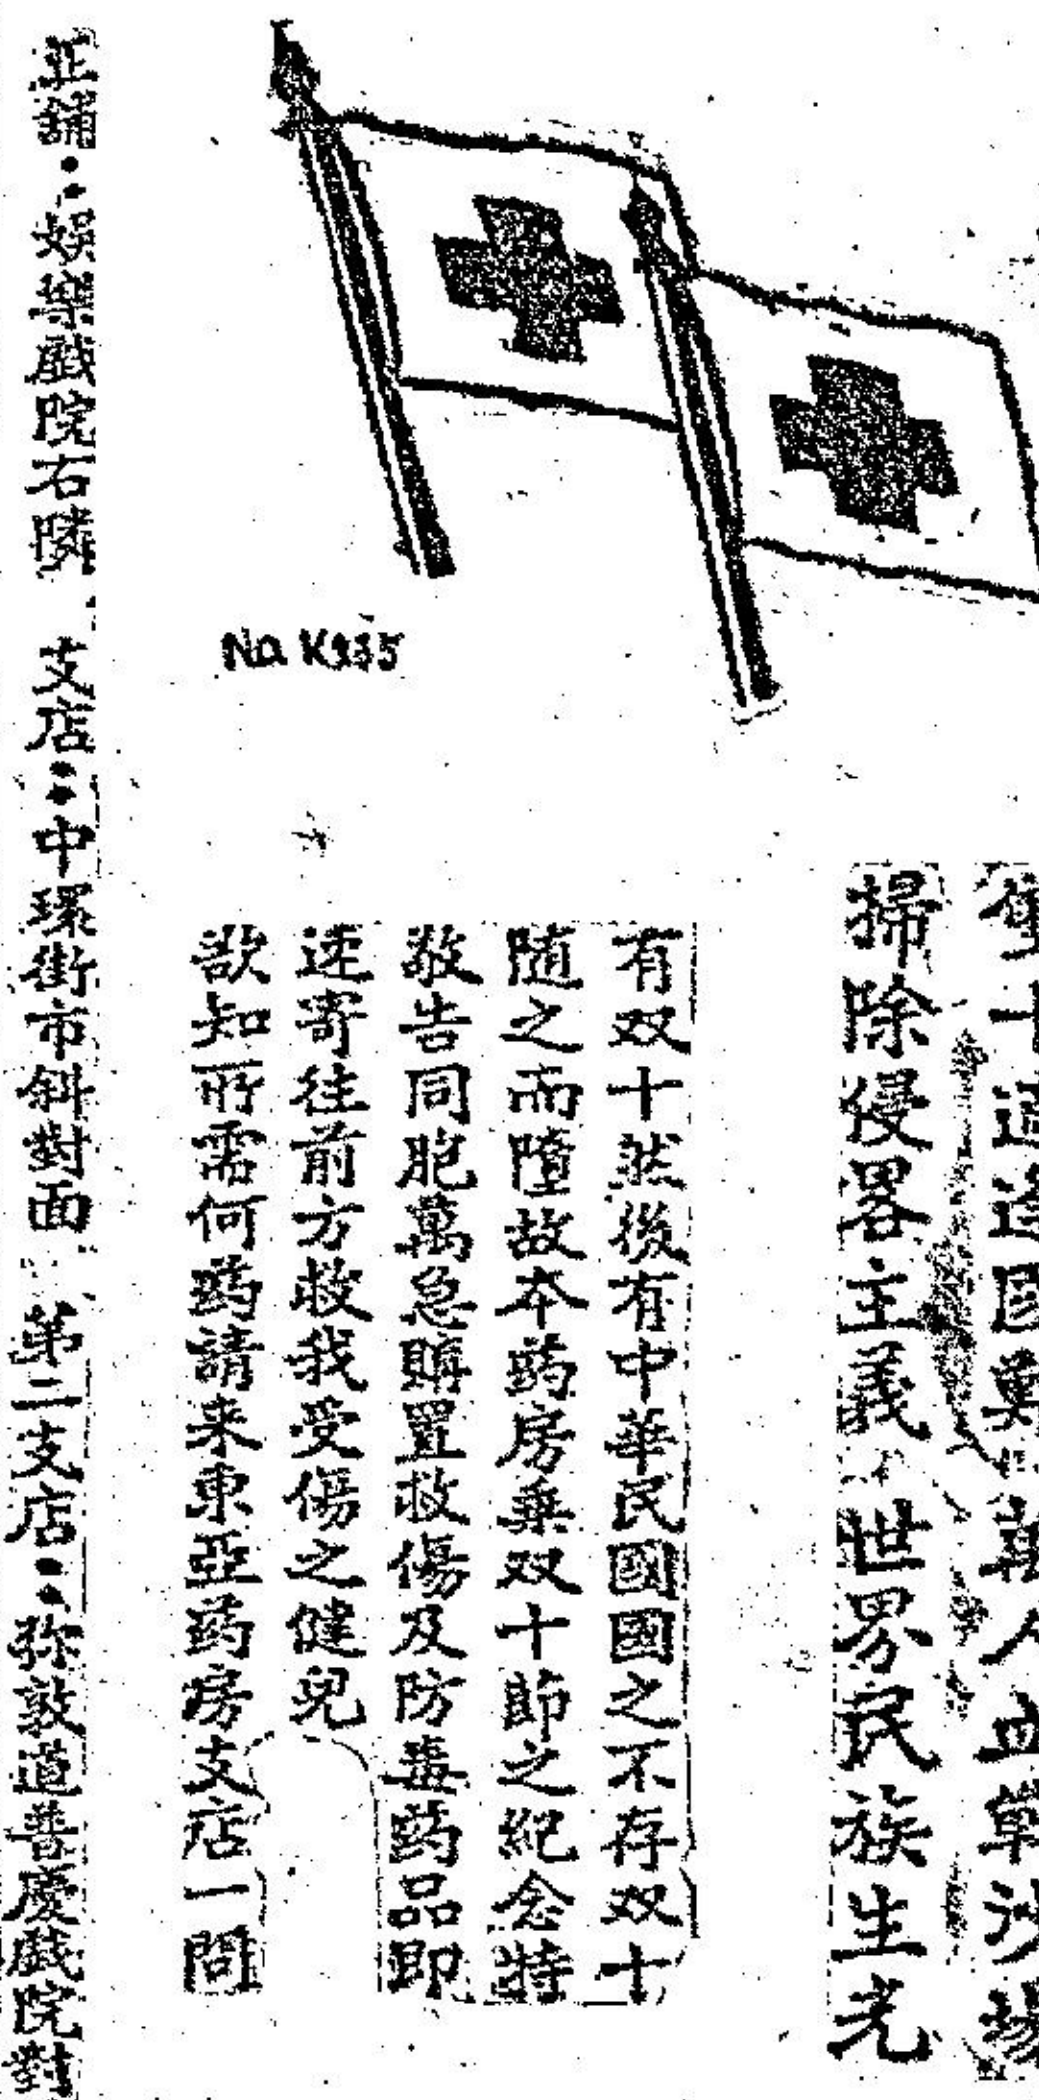 雙十適逢國難 萬人血戰沙場
掃除侵畧主義 世界民族生光
有双十然後有中華民國國之不存双十
随之而墮故本药房乘双十節之紀念特
敬告同胞萬急購置救傷及防毒药品即
速寄往前方救我受傷之健兒
欲知所需何药請来東亞药房支店一問
No K935
正舖：娛樂戲院右隣 支店：中環街市斜對面 第二支店：弥敦道普慶戲院對